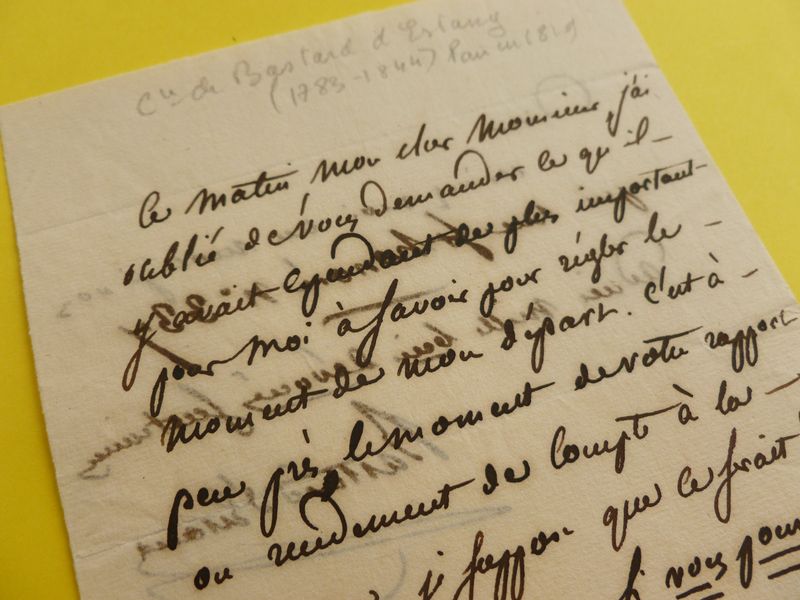 Cte de Bastard d'Estang
(1783-1844) Pair en 1819
Ce matin, mon cher monsieur, j'ai
oublié de vous demander ce qu'il
y avait cependant de plus important
pour moi à savoir pour régler le
moment de mon départ. C'est à
peu près le moment de votre rapport
ou rendement de compte à la
je suppose que ce serait
si vous pouv